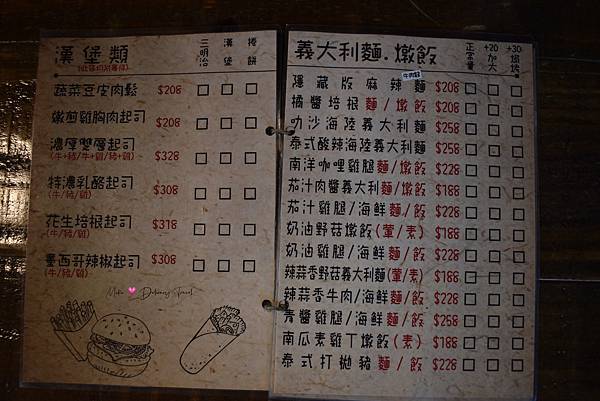 漢堡類
三明治
漢堡
捲餅
蔬菜豆皮肉鬆 $208 □ □ □
嫩煎雞胸肉起司 $208 □ □ □
濃厚雙層起司 $328 □ □ □
(牛+豬/牛+雞/豬+雞)
特濃乳酪起司 $308 □ □ □
(牛/豬/雞)
花生培根起司 $318 □ □ □
(牛/豬/雞)
墨西哥辣椒起司 $308 □ □ □
(牛/豬/雞)
Delicacy Travel
義大利麵.燉飯
正常量
+20加大
隱藏版麻辣麵 $208 □ □ □
橘醬培根麵/燉飯 $208 □ □ □
叻沙海陸義大利麵 $258 □ □ □
泰式酸辣海陸義大利麵 $258 □ □ □
南洋咖哩雞腿麵/燉飯 $228 □ □ □
茄汁肉醬義大利麵/燉飯 $188 □ □ □
茄汁雞腿/海鮮麵/飯 $228 □ □ □
奶油野菇燉飯(葷/素) $188 □ □ □
奶油雞腿/海鮮麵/飯 $228 □ □ □
辣蒜香野菇義大利麵(葷/素) $188 □ □ □
辣蒜香牛肉/海鮮麵/飯 $228 □ □ □
青醬雞腿/海鮮麵/飯 $258 □ □ □
南瓜素雞丁燉飯(素) $188 □ □ □
泰式打拋豬麵/飯 $228 □ □ □